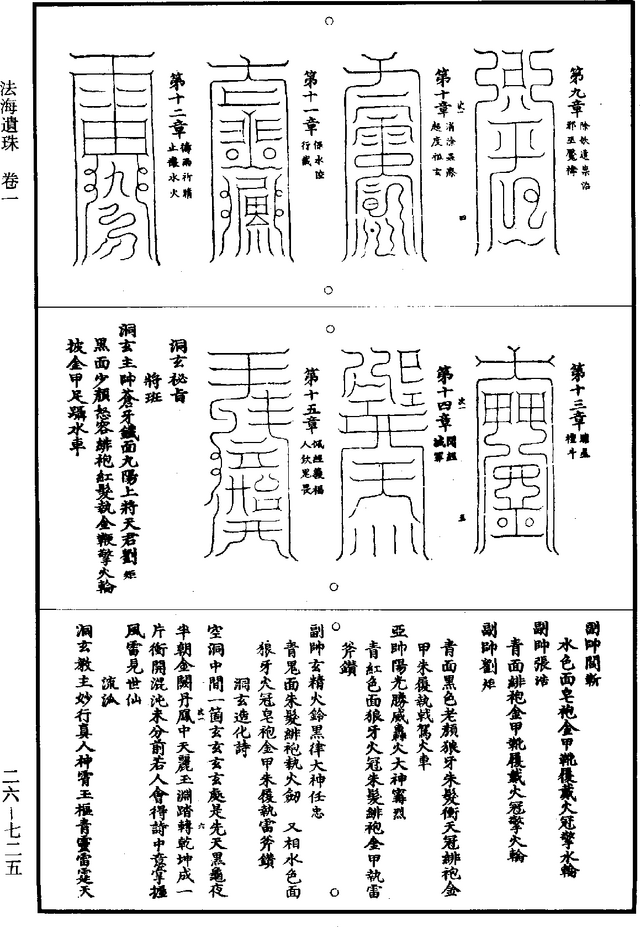 法海遺珠　卷一
二六—七二五
第九章
除妖遣祟治
邪巫驚悸
第十章
超度祖玄
四
第十一章
行藏
第十二章
禱雨祈晴
止禳水火
第十三章
第十四章
滅罪
五
第十五章
人欽鬼畏
洞玄秘旨
將班
洞玄主帥蒼牙鐵面九陽上將天君劉矩
黑面少顏怒容緋袍紅髮執金鞭擎火輪
披金甲足躡水車
副帥閻
水色面皂袍金甲靴履戴火冠擎水輪
副帥張浩
青面緋袍金甲靴履戴火冠擎火輪
副帥劉矩
青面黑色老顏狼牙朱髮衝天冠緋袍金
甲朱履執戟駕火車
亞帥陽光勝威轟火大神竇烈
青紅色面狼牙火冠朱髮緋袍金甲執雷
斧鑽
副帥玄精火鈴黑律大神任忠
青鬼面朱髮緋袍執火劒　又相水色面
狼牙火冠皂袍金甲朱履執雷斧鑽
洞玄造化詩
空洞中間一箇玄玄玄玄處是先天黑龜夜
六
半朝金闕丹鳳中天麗玉淵踏轉乾坤成一
片衝開混沌未分前若人會得詩中意掌握
風雷見世仙
流派
洞玄教主妙行真人神霄玉樞青靈雷霆天